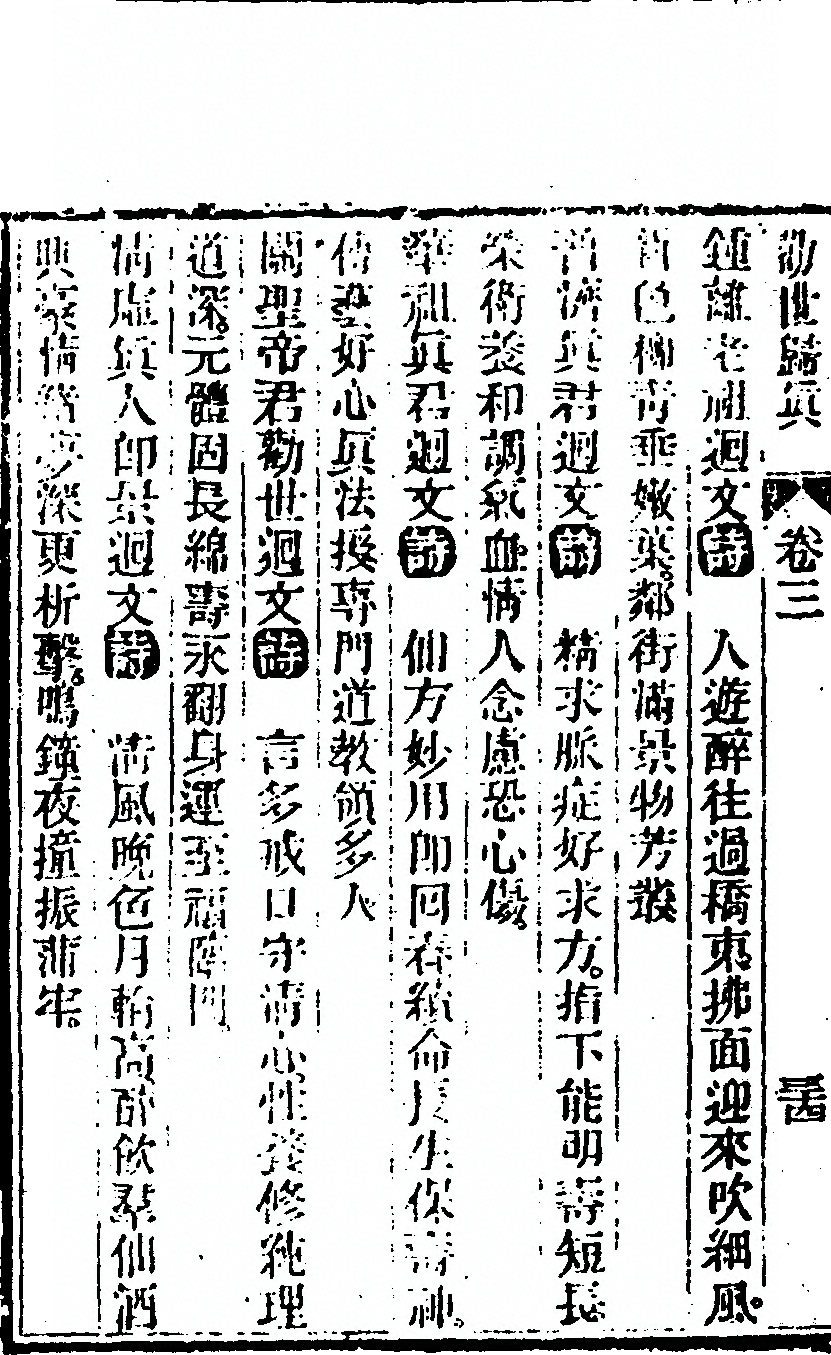 勸世歸真 卷三 三四
鍾離老祖迴文詩 人遊醉往過橋東拂面迎來吹細風。
色柳青垂嫩葉。鄰街滿景物芳叢
普濟真君迴文詩 精求脈症好求方。指下能明壽短長
榮衛養和調氣血情人念慮恐心傷。
華祖真君迴文詩 仙方妙用即回春續命長生保壽神。
傳靈好心真法授專門道教領多人
關聖帝君勸世迴文詩 言多戒口守清心性養修純理
道深。元體固長綿壽永翻身運至福臨門
清虛真人即景迴文詩 清風晚色月輪高酌飲群仙酒
興豪情夢深更析擊。鳴鐘夜撞振蒲牢。